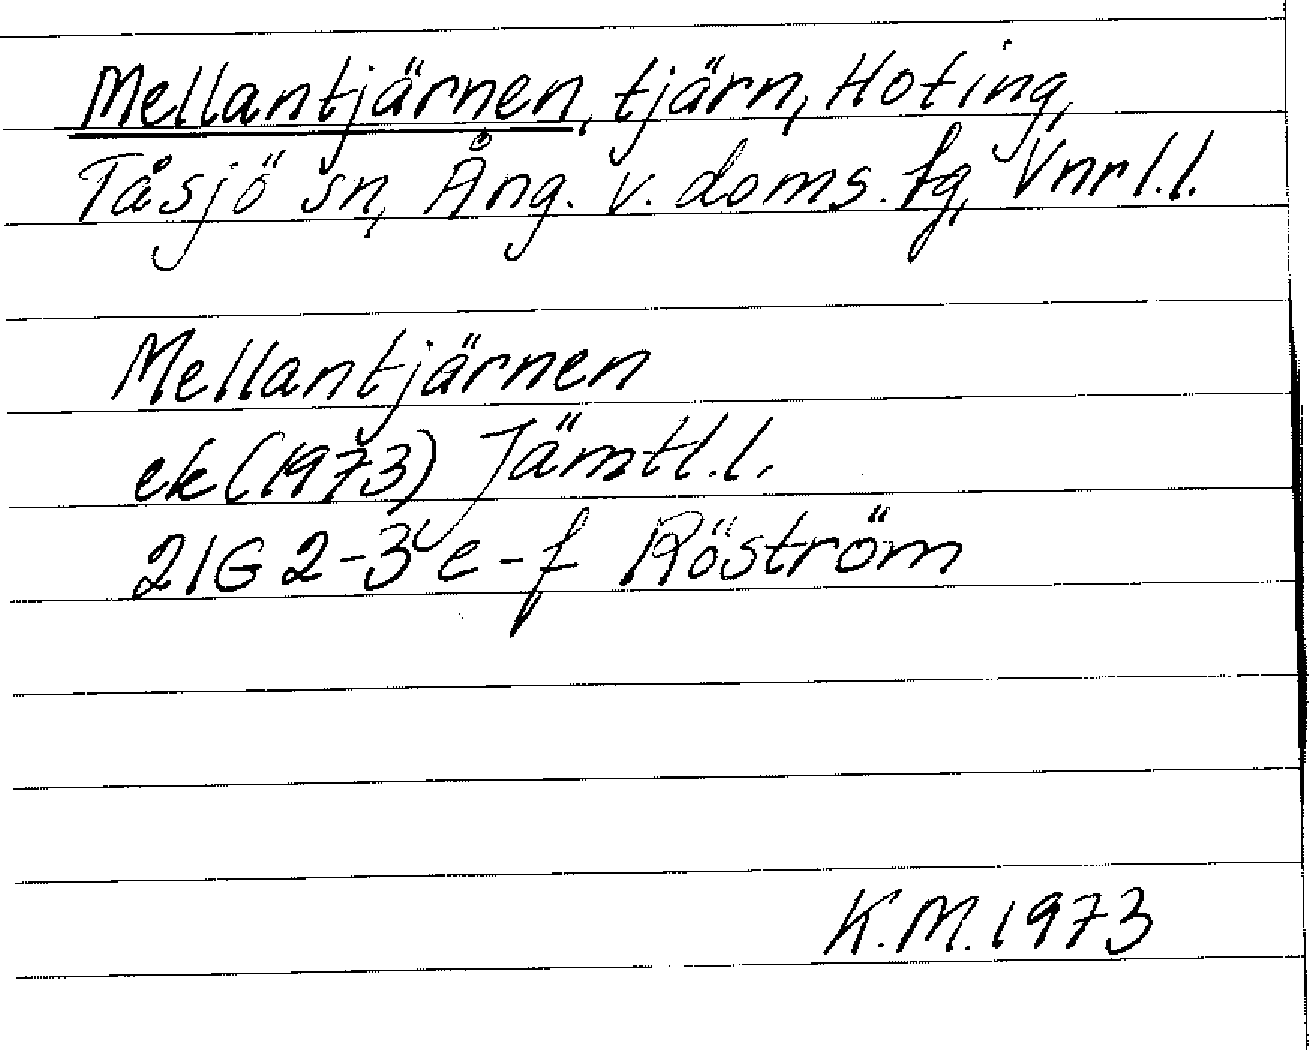 Mellantjärnen, tjärn, Hoting,
Tåsjö sn, Ång. v. doms. fg, Vnrl.l.
Mellantjärnen
ek (1973) Jämtl.l.
21G 2-3 e-f Röström
K.M. 1973